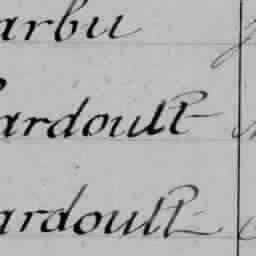 arbu
ardoult
ardoult